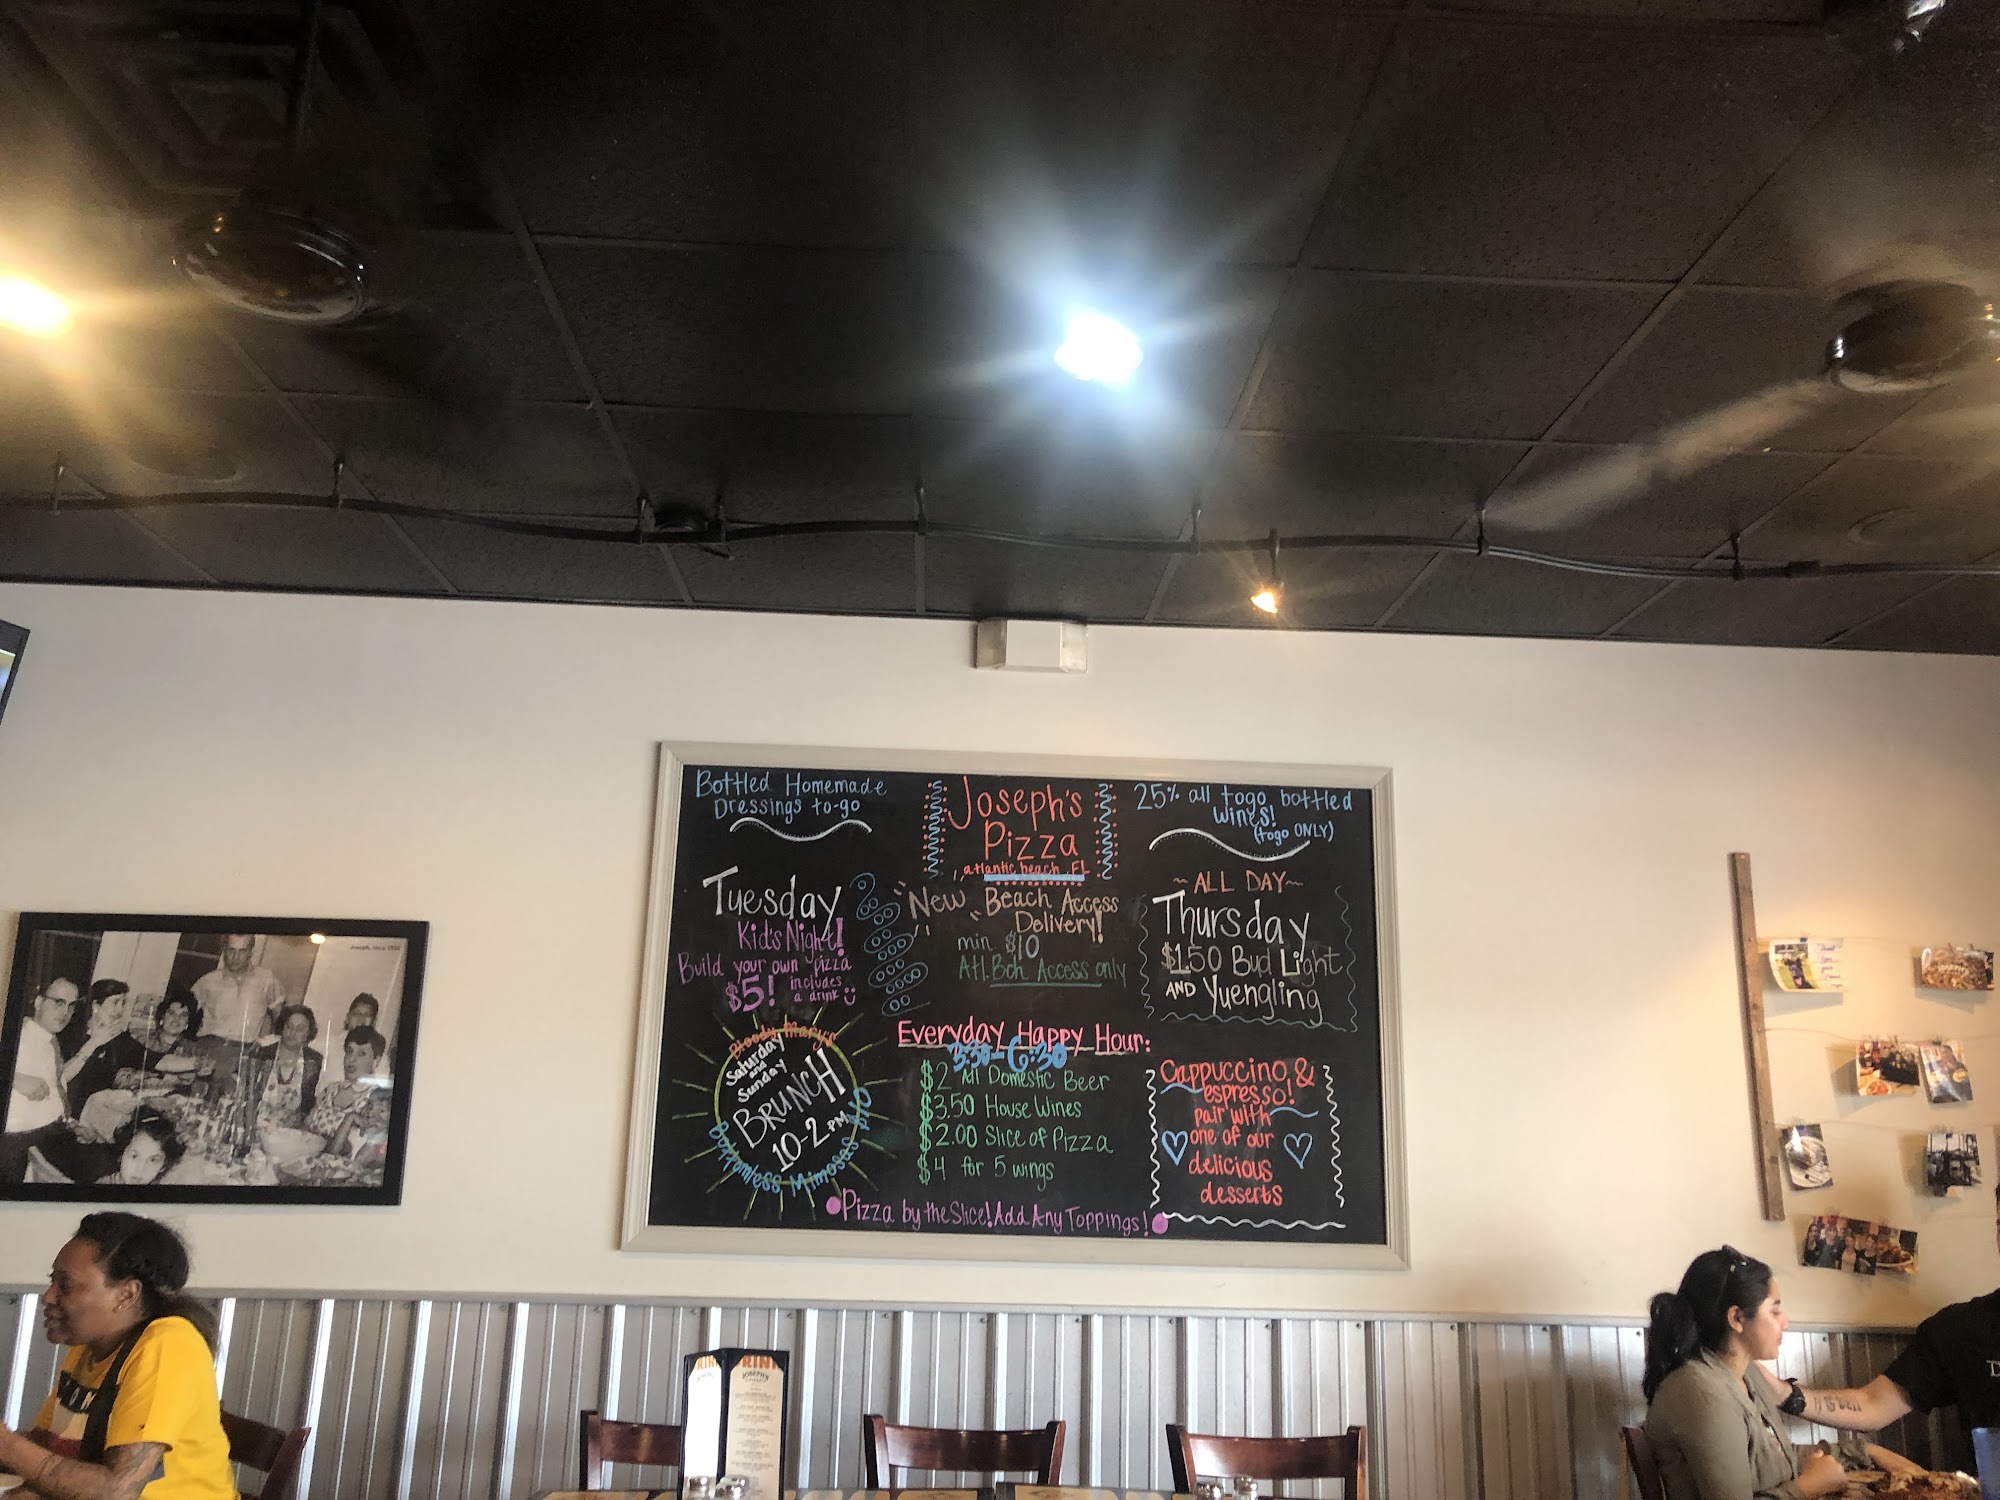 Bottled Homemade
Dressings to-go
Joseph's
Pizza
atlantic beach, FL
25% all togo bottled
wines!
(togo ONLY)
Tuesday
Kid's Night!
Build your own pizza
$5! includes
a drink
"New" Beach Access
Delivery!
min. $10
Atl. Bch Access only
~ALL DAY~
Thursday
$1.50 Bud Light
AND Yuengling
Bloody Mary's
Saturday
and
Sunday
BRUNCH
10-2 PM
Bottomless Mimosas
Everyday Happy Hour:
3:30-6:30
$2 All Domestic Beer
$3.50 House Wines
$2.00 Slice of Pizza
$4 for 5 wings
Cappuccino &
espresso!
pair with
one of our
delicious
desserts
Pizza by the Slice! Add Any Toppings!
Joseph, circa 1950
JOSEPH'S